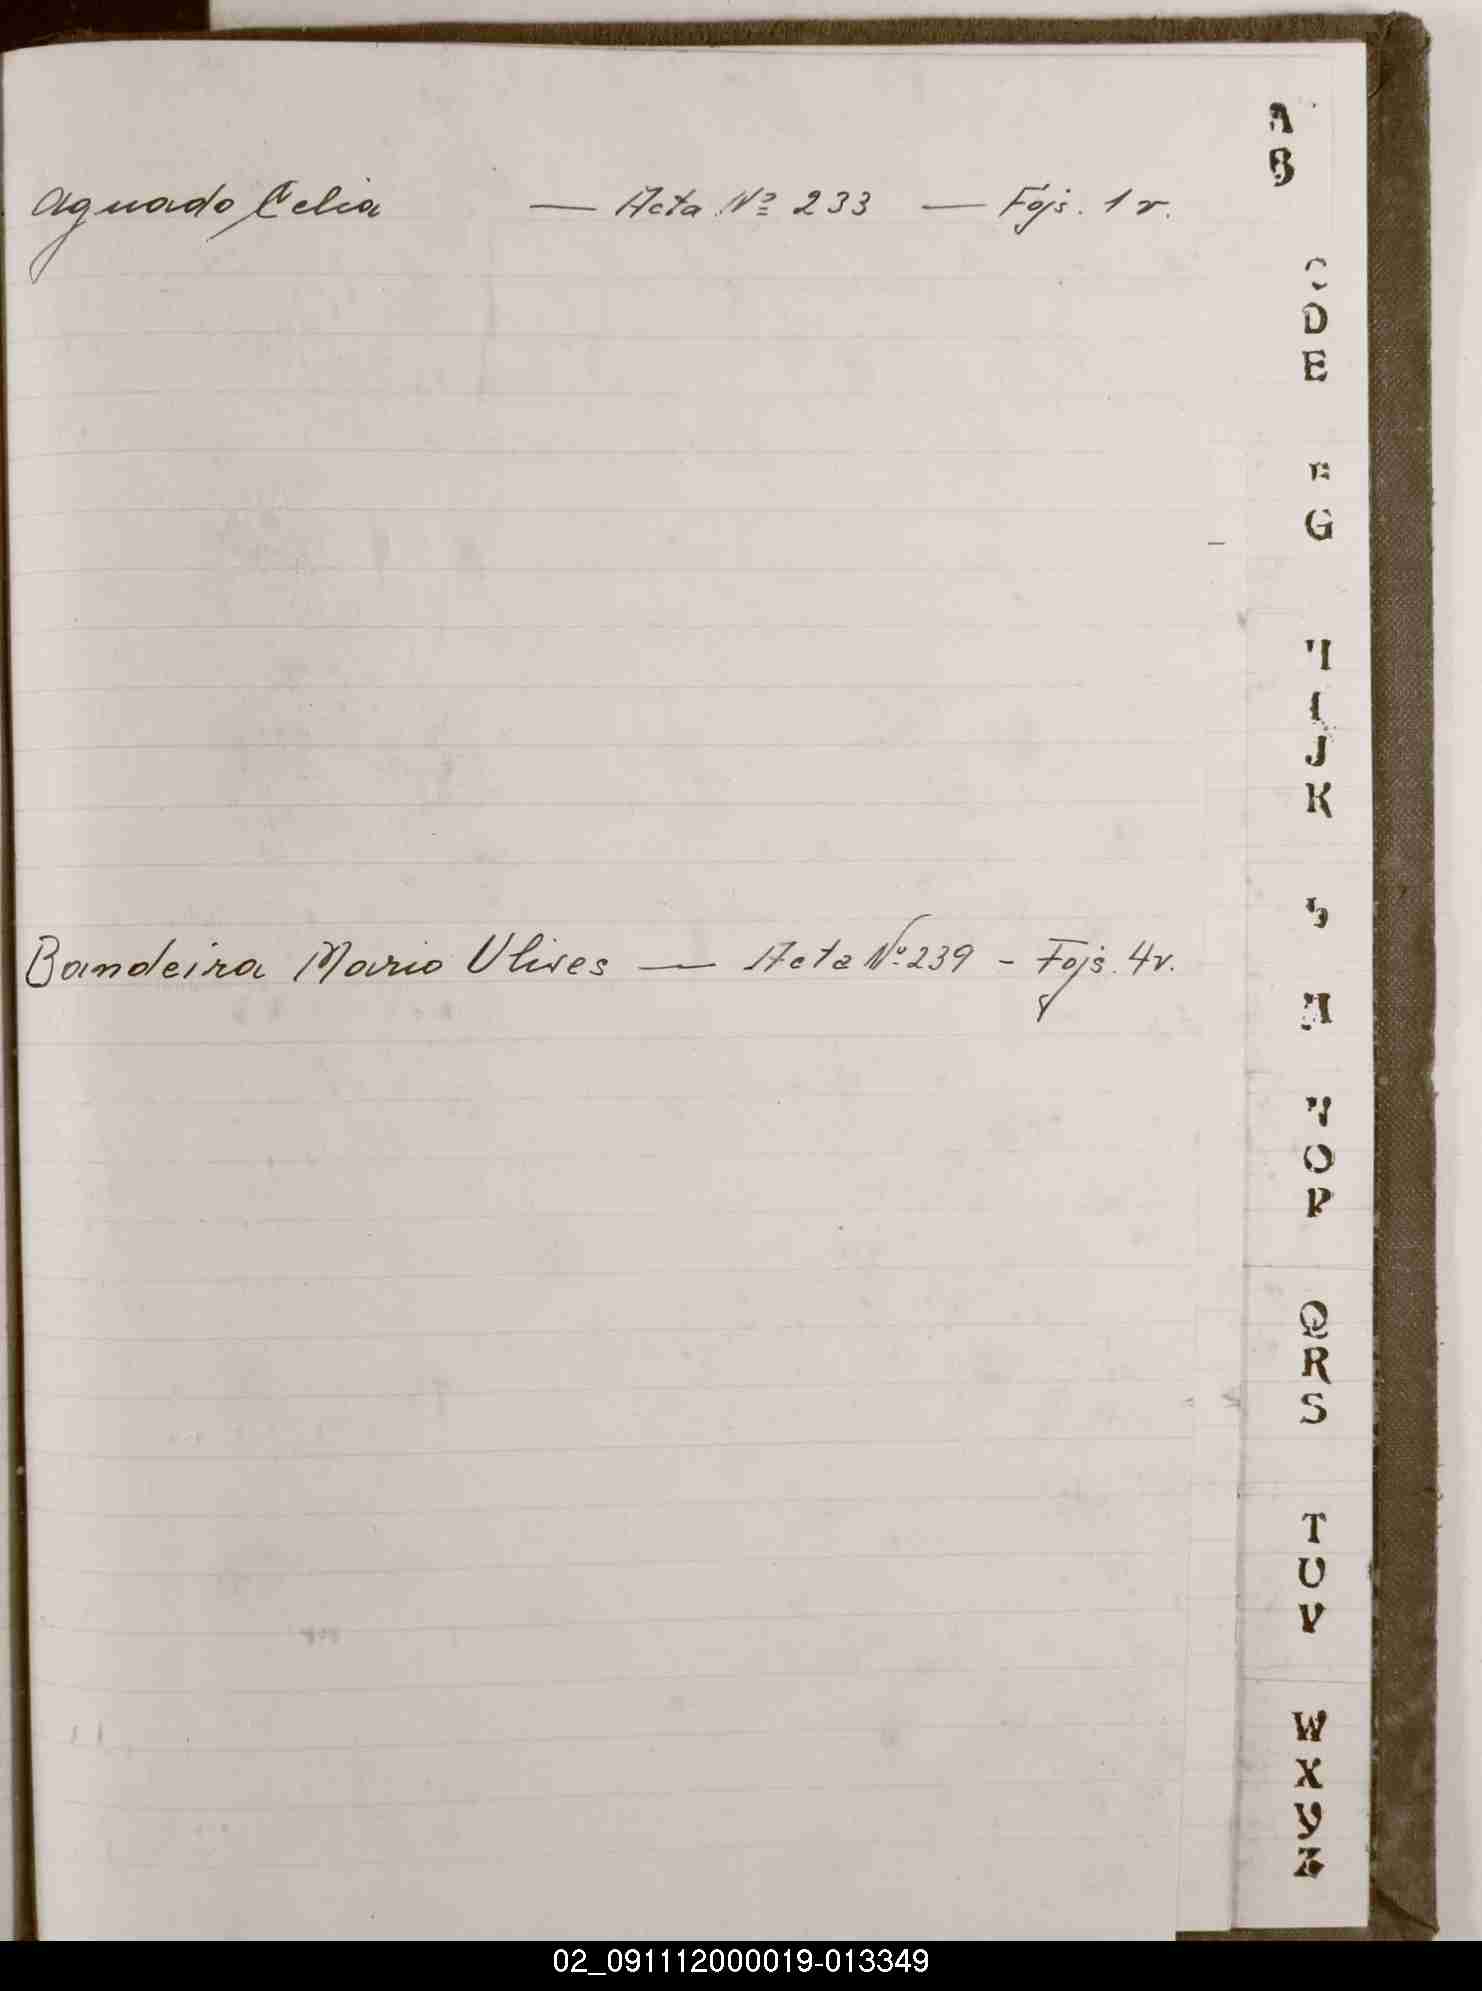 Aguado Celia — Acta Nº 233 — Fojs. 1 v.
Bandeira Mario Ulises — Acta Nº 239 - Fojs. 4v.
A
B
C
D
E
F
G
H
I
J
K
M
N
O
P
Q
R
S
T
U
V
W
X
Y
Z
02_091112000019-013349